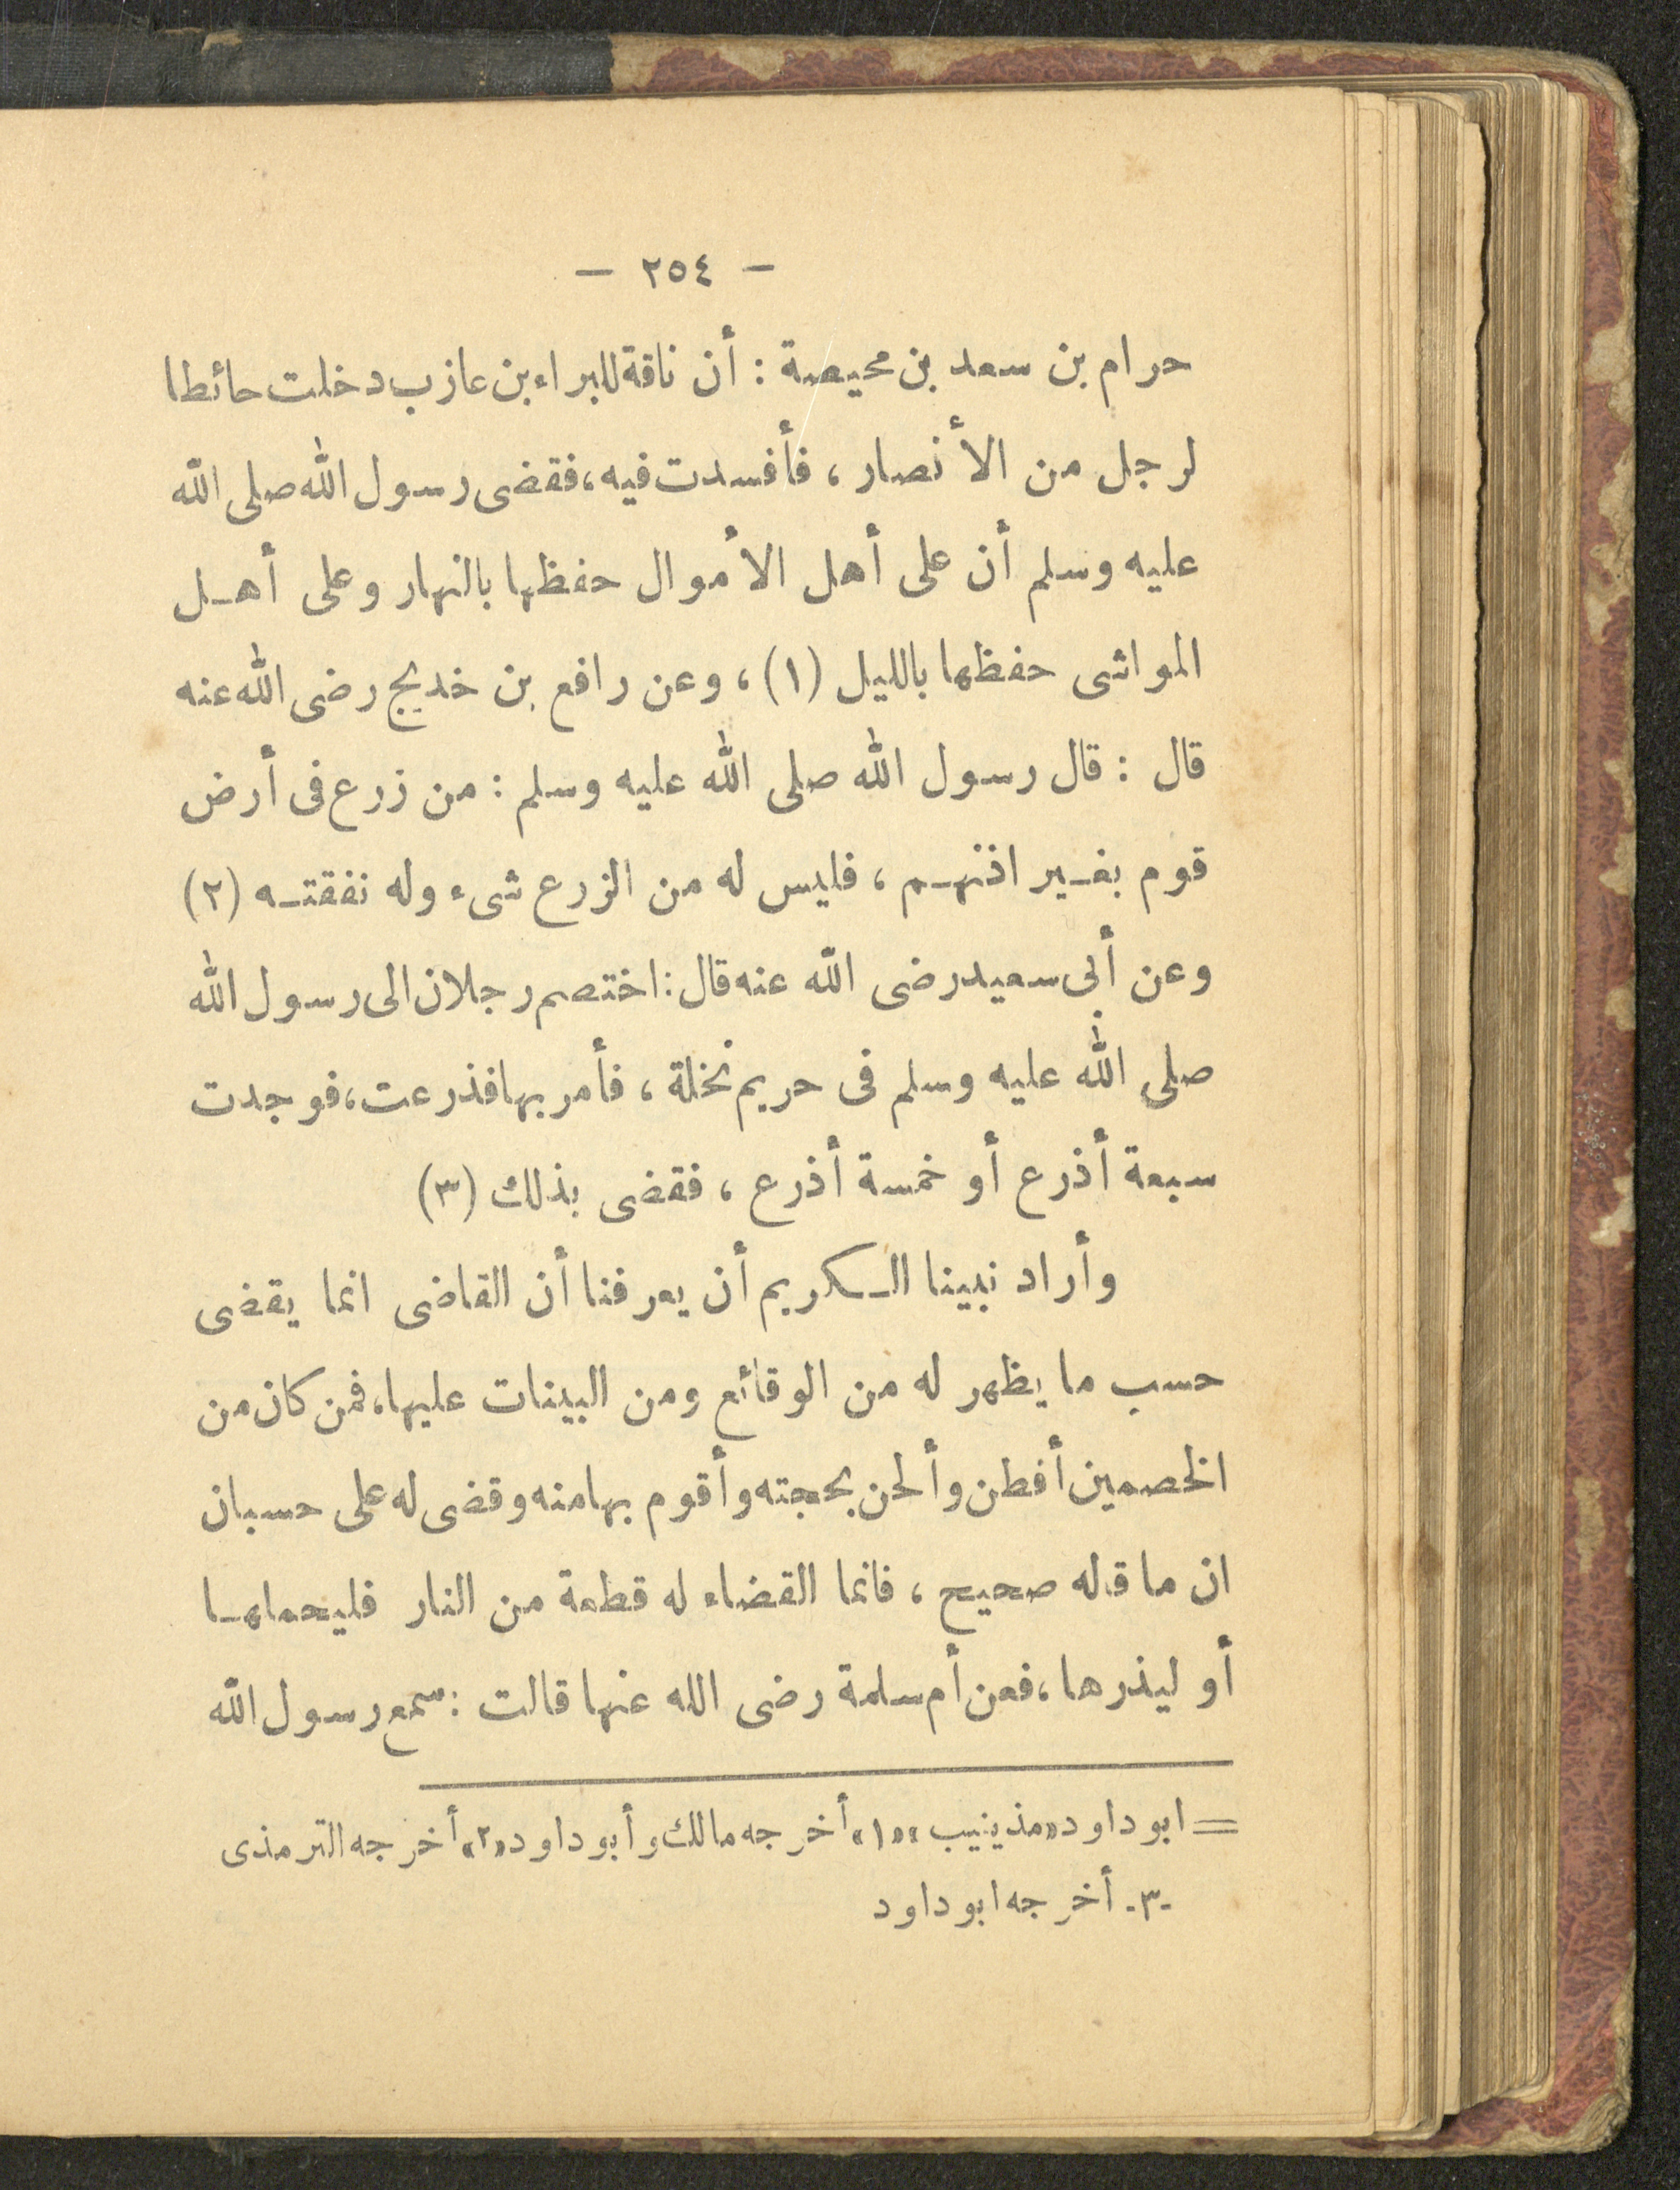 — ٢٥٤ —
حرام بن سعد بن محيصة : أن ناقة للبراء بن عازب دخلت حائطا
لرجل من الأنصار ، فأفسدت فيه ، فقضى رسول الله صلى الله
عليه وسلم أن على أهل الأموال حفظها بالنهار وعلى أهـل
المواشى حفظها بالليل (١) ، وعن رافع بن خديج رضى الله عنه
قال : قال رسول الله صلى الله عليه وسلم : من زرع فى أرض
قوم بغـير اذنهـم ، فليس له من الزرع شىء وله نفقتـه (٢)
وعن أبى سعيد رضى الله عنه قال : اختصم رجلان الى رسول الله
صلى الله عليه وسلم فى حريم نخلة ، فأمر بها فذرعت ، فوجدت
سبعة أذرع أو خمسة أذرع ، فقضى بذلك (٣)
وأراد نبينا الـكريم أن يعرفنا أن القاضى انما يقضى
حسب ما يظهر له من الوقائع ومن البينات عليها ، فمن كان من
الخصمين أفطن وألحن بحجته وأقوم بها منه وقضى له على حسبان
ان ما قاله صحيح ، فانما القضاء له قطعة من النار فليحملهـا
أو ليذرها ، فعن أم سلمة رضى الله عنها قالت : سمع رسول الله
= ابو داود «مذينيب» «١» أخرجه مالك وأبو داود «٢» أخرجه الترمذى
-٣- أخرجه ابو داود